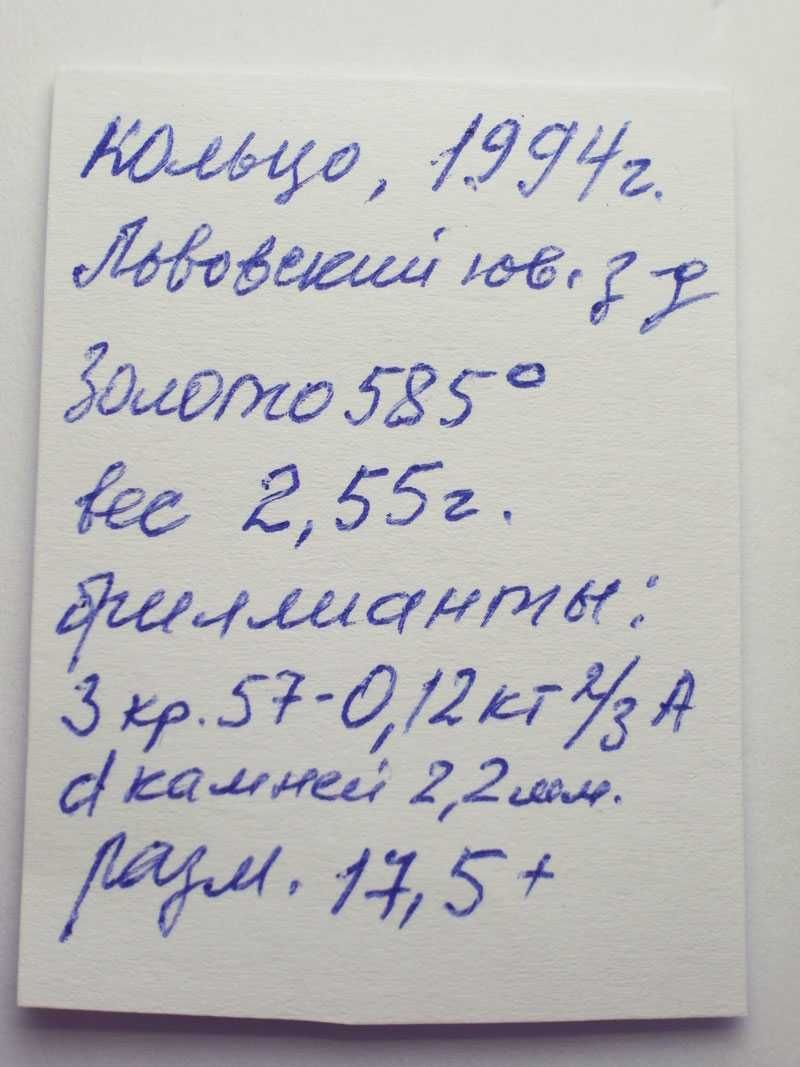 Кольцо, 1994г.
Львовский юв. з-д
Золото 585°
вес 2,55г.
бриллианты:
3 кр. 57-0,12кт 2/3 А
d камней 2,2мм.
разм. 17,5+